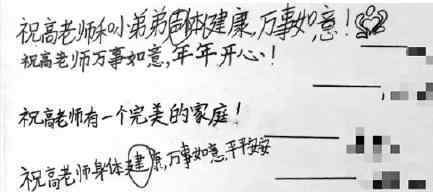 祝高老师和小弟弟身体健康,万事如意!
祝高老师万事如意,年年开心!
祝高老师有一个完美的家庭!
祝高老师身体健康,万事如意,平平安安